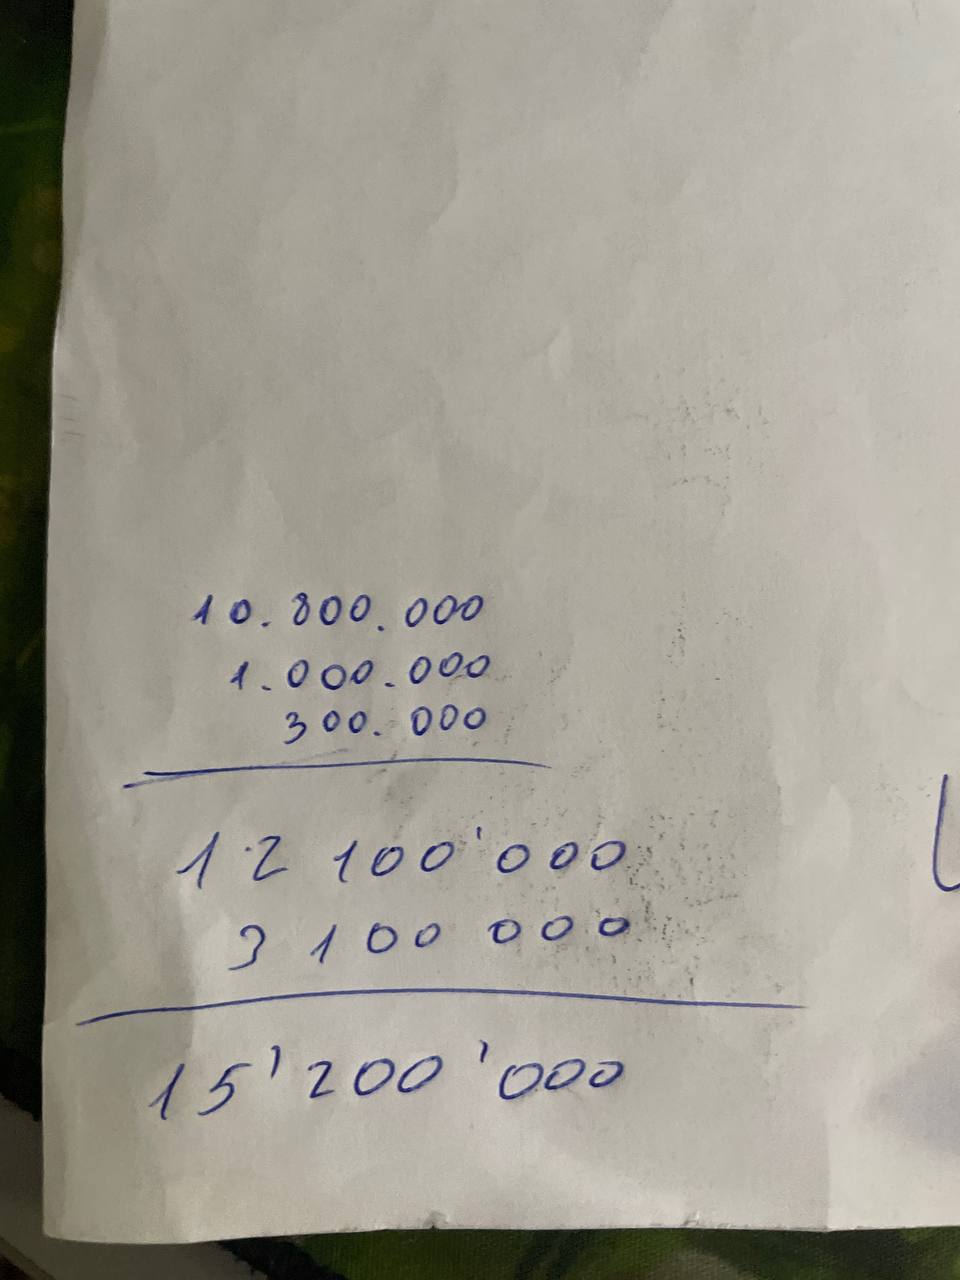 10.800.000
1.000.000
300.000
12 100'000
3 100 000
15'200'000